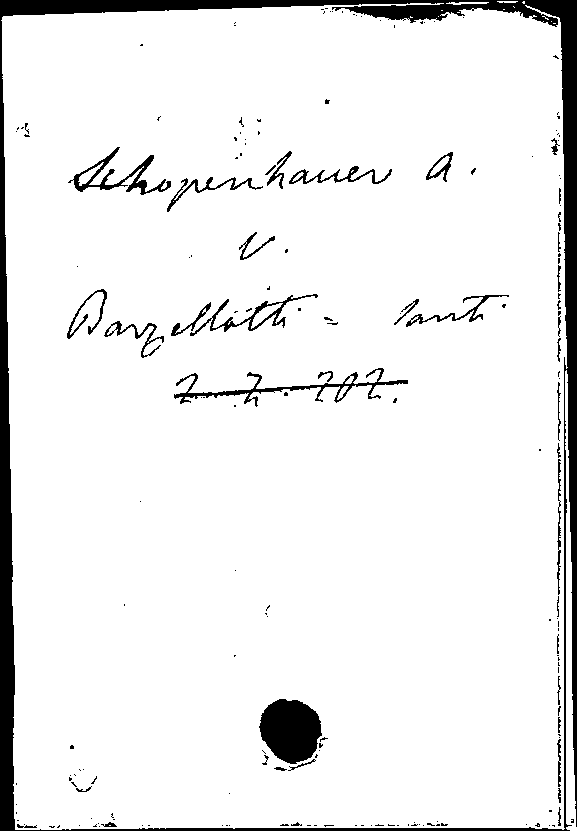 Schopenhauer A.
V.
Barzellotti = Santi
2. Z. 202.